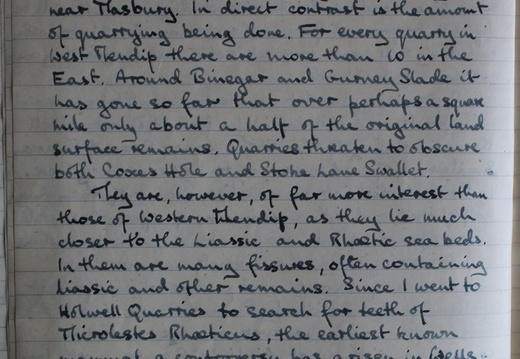 near Masbury. In direct contrast is the amount
of quarrying being done. For every quarry in
West Mendip there are more than 10 in the
East. Around Binegar and Gurney Slade it
has gone so far that over perhaps a square
mile only about a half of the original land
surface remains. Quarries threaten to obscure
both Coxes Hole and Stoke Lane Swallet.
They are, however, of far more interest than
those of Western Mendip, as they lie much
closer to the Liassic and Rhætic sea beds.
In them are many fissures, often containing
Liassic and other remains. Since I went to
Holwell Quarries to search for teeth of
Microlestes Rhæticus, the earliest known
mammal, a controversy has arisen in Wells